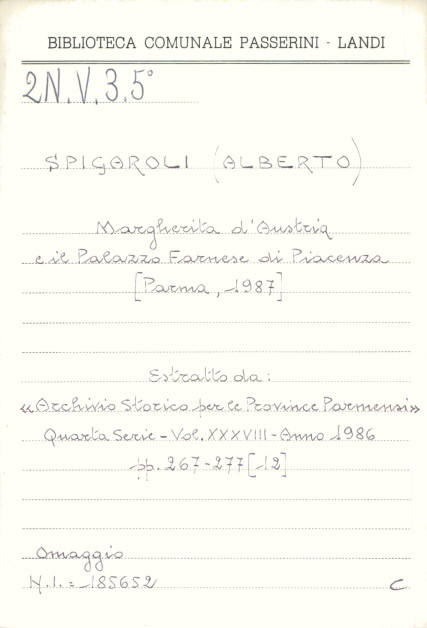 BIBLIOTECA COMUNALE PASSERINI - LANDI
2N.V.3.5°
SPIGAROLI (ALBERTO)
Margherita d'Austria
e il Palazzo Farnese di Piacenza
[Parma, 1987]
Estratto da:
«Archivio Storico per le Province Parmensi»
Quarta Serie - Vol. XXXVIII - Anno 1986
pp. 267-277 [12]
Omaggio
N.I. = 185652
C